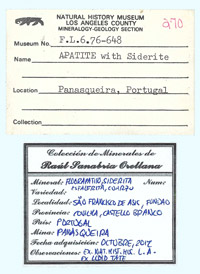 NATURAL HISTORY MUSEUM
LOS ANGELES COUNTY
MINERALOGY-GEOLOGY SECTION
270
Museum No. F.L.6.76-648
Name APATITE with Siderite
Location Panasqueira, Portugal
Collection
Colección de Minerales de
Raúl Sanabria Orellana
Mineral: FLUORAPATITO, SIDERITA Name:
Variedad: CUARZO
Localidad: SÃO FRANCISCO DE ASIS, FUNDAO
Provincia: CASTELO BRANCO
País: PORTUGAL
Mina: PANASQUEIRA
Fecha adquisición: OCTUBRE, 2017
Observaciones: EX. NAT. HIST. MUS. L.A.
EX